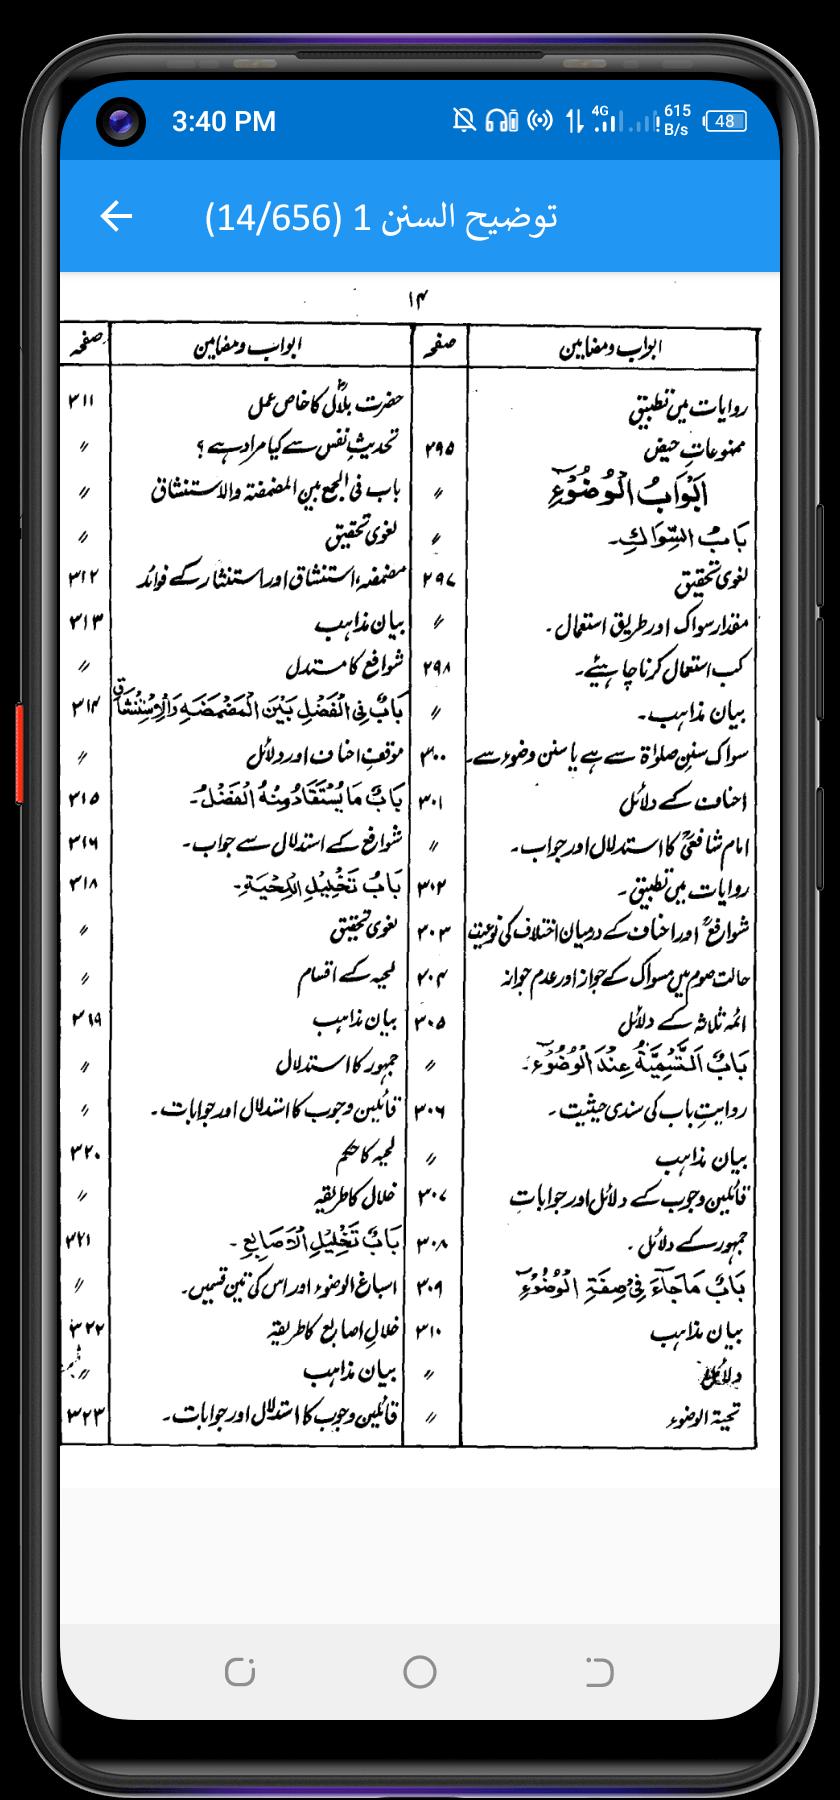 3:40 PM 4G 615 B/s 48
توضيح السنن 1 (14/656)
۱۴
ابواب ومضامین صفحہ
روایات میں تطبیق
ممنوعاتِ حیض ۲۹۵
اَبْوَابُ الْوُضُوْءِ 〃
بَابُ السِّوَاكِ۔ 〃
لغوی تحقیق ۲۹۷
مقدار سواک اور طریق استعمال۔ 〃
کب استعمال کرنا چاہیئے۔ ۲۹۸
بیان مذاہب۔ 〃
سواک سننِ صلوٰۃ سے ہے یا سنن وضوء سے۔ ۳۰۰
احناف کے دلائل ۳۰۱
امام شافعیؒ کا استدلال اور جواب۔ 〃
روایات میں تطبیق۔ ۳۰۲
شوافعؒ اور احناف کے درمیان اختلاف کی نوعیت ۳۰۳
حالت صوم میں مسواک کے جواز اور عدم جواز ۳۰۴
ائمہ ثلاثہ کے دلائل ۳۰۵
بَابُ التَّسْمِيَةِ عِنْدَ الْوُضُوْءِ۔ 〃
روایتِ باب کی سندی حیثیت۔ ۳۰۶
بیان مذاہب 〃
قائلین وجوب کے دلائل اور جوابات ۳۰۷
جمہور کے دلائل۔ ۳۰۸
بَابُ مَاجَآءَ فِىْ صِفَةِ الْوُضُوْءِ ۳۰۹
بیان مذاہب ۳۱۰
دلائل 〃
تحیۃ الوضوء 〃
ابواب ومضامین صفحہ
حضرت بلالؓ کا خاص عمل ۳۱۱
تحدیثِ نفس سے کیا مراد ہے؟ 〃
باب فی الجمع بین المضمضۃ والاستنشاق 〃
لغوی تحقیق 〃
مضمضہ، استنشاق اور استنشار کے فوائد ۳۱۲
بیان مذاہب ۳۱۳
شوافع کا مستدل 〃
بَابٌ فِى الْفَصْلِ بَيْنَ الْمَضْمَضَةِ وَالْاِسْتِنْشَاقِ ۳۱۴
موقفِ احناف اور دلائل 〃
بَابُ مَا يُسْتَفَادُ مِنْهُ الْفَصْلُ۔ ۳۱۵
شوافع کے استدلال سے جواب۔ ۳۱۶
بَابُ تَخْلِيْلِ اللِّحْيَةِ۔ ۳۱۸
لغوی تحقیق 〃
لحیہ کے اقسام 〃
بیان مذاہب ۳۱۹
جمہور کا استدلال 〃
قائلین وجوب کا استدلال اور جوابات۔ 〃
لحیہ کا حکم ۳۲۰
خلال کا طریقہ 〃
بَابُ تَخْلِيْلِ الْاَصَابِعِ۔ ۳۲۱
اسباغ الوضوء اور اس کی تین قسمیں۔ 〃
خلالِ اصابع کا طریقہ ۳۲۲
بیان مذاہب 〃
قائلین وجوب کا استدلال اور جوابات۔ ۳۲۳